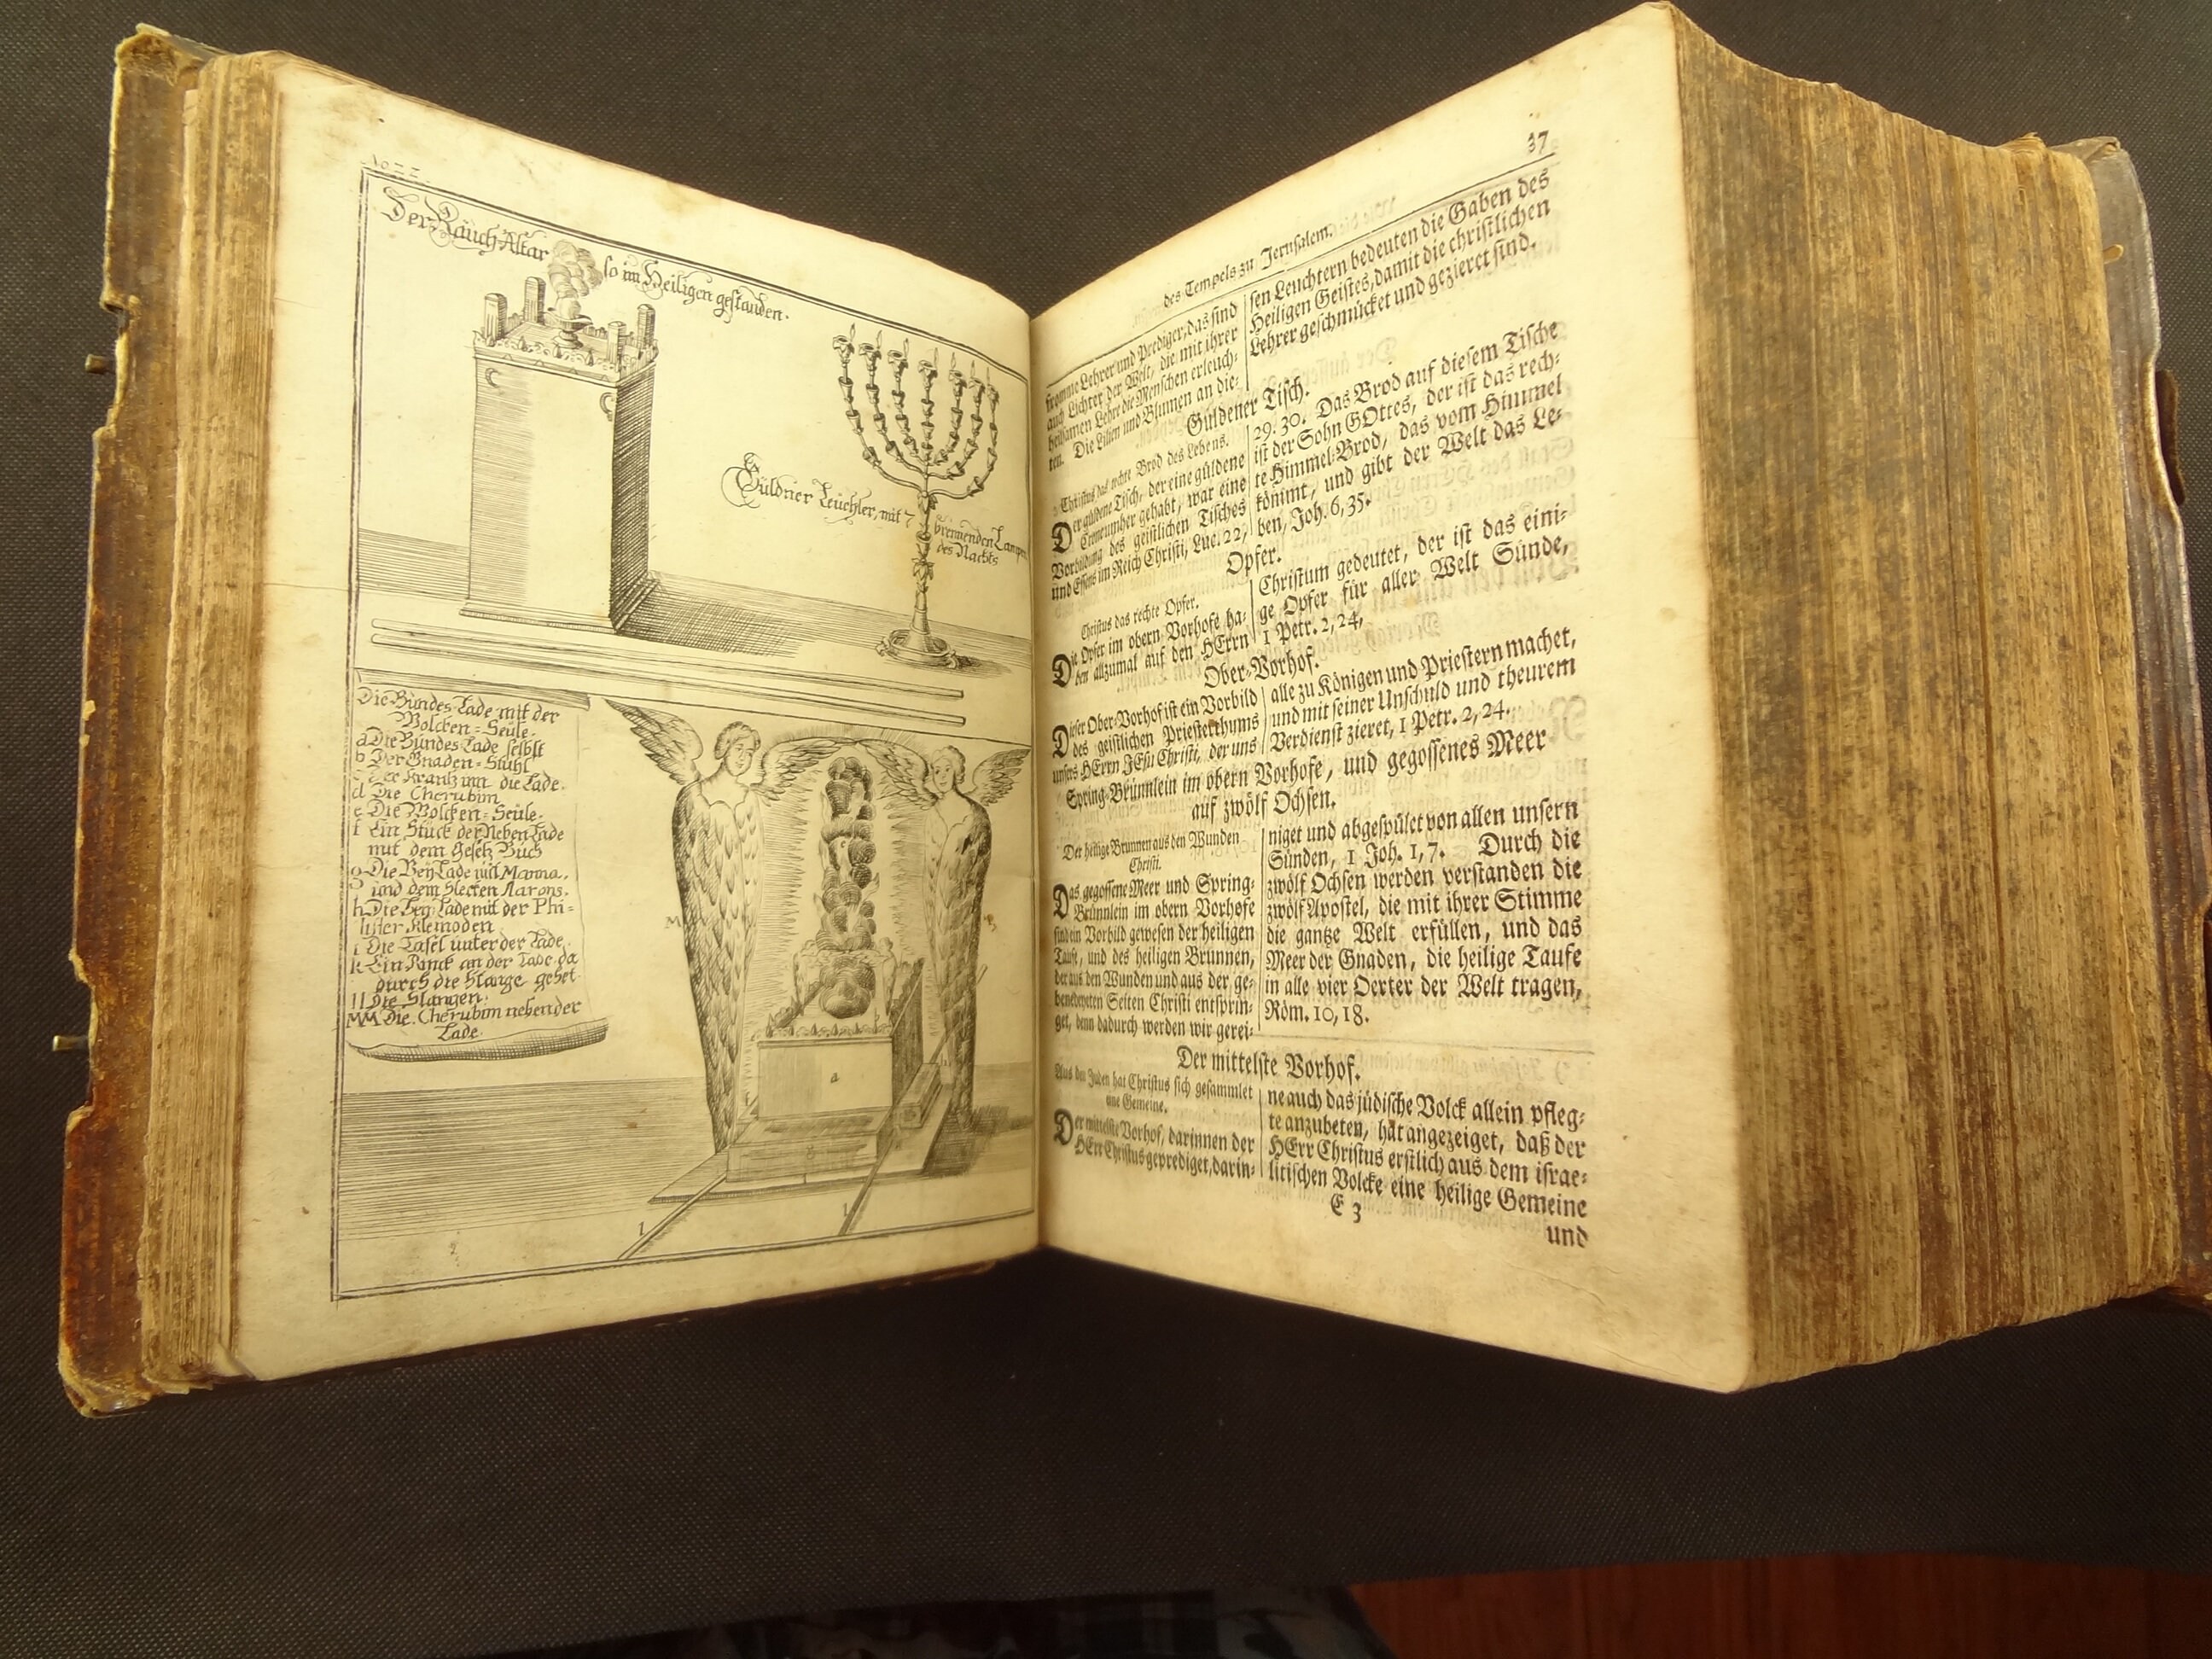 Der Räuch Altar so im Heiligen gestanden.
Güldner Leuchter, mit 7 brennenden Lampen
des Nachts
Die Bundes Lade mit der
Wolcken-Seule.
a Die Bundes Lade selbst
b Der Gnaden-Stuhl
c Der Krantz um die Lade.
d Die Cherubim
e Die Wolcken-Seule.
f Ein Stück der Neben Lade
mit dem Gesetz Buch
g Die Bey Lade mit Manna,
und dem Stecken Aarons.
h Die Bey Lade mit der Phi-
lister Kleinoden
i Die Tafel unter der Lade.
k Ein Rinck an der Lade da
durch die Stange gehet
ll Die Stangen.
MM Die Cherubim neben der
Lade.
M
a
l
l
37
des Tempels zu Jerusalem.
fromme Lehrer und Prediger, das sind
auch Lichter der Welt, die mit ihrer
heilsamen Lehre die Menschen erleuch-
ten. Die Lilien und Blumen an die-
sen Leuchtern bedeuten die Gaben des
Heiligen Geistes, damit die christlichen
Lehrer geschmücket und gezieret sind.
Güldener Tisch.
Christus das rechte Brod des Lebens.
Der güldene Tisch, der eine güldene
umher gehabt, war eine
Vorbildung des geistlichen Tisches
und Essens im Reich Christi, Luc. 22,
29. 30. Das Brod auf diesem Tische
ist der Sohn GOttes, der ist das rech-
te Himmel-Brod, das vom Himmel
kömmt, und gibt der Welt das Le-
ben, Joh. 6, 35.
Opfer.
Christus das rechte Opfer.
Die Opfer im obern Vorhofe ha-
ben allzumal auf den HErrn
Christum gedeutet, der ist das eini-
ge Opfer für aller Welt Sünde,
1 Petr. 2, 24,
Ober-Vorhof.
Dieser Ober-Vorhof ist ein Vorbild
des geistlichen Priesterthums
unsers HErrn JEsu Christi, der uns
alle zu Königen und Priestern machet,
und mit seiner Unschuld und theurem
Verdienst zieret, 1 Petr. 2, 24.
Spring-Brünnlein im obern Vorhofe, und gegossenes Meer
auf zwölf Ochsen.
Der heilige Brunnen aus den Wunden
Christi.
Das gegossene Meer und Spring-
Brünnlein im obern Vorhofe
sind ein Vorbild gewesen der heiligen
Taufe, und des heiligen Brunnen,
der aus den Wunden und aus der ge-
benedeyeten Seiten Christi entsprin-
get, denn dadurch werden wir gerei-
niget und abgespület von allen unsern
Sünden, 1 Joh. 1, 7. Durch die
zwölf Ochsen werden verstanden die
zwölf Apostel, die mit ihrer Stimme
die gantze Welt erfüllen, und das
Meer der Gnaden, die heilige Taufe
in alle vier Oerter der Welt tragen,
Röm. 10, 18.
Der mittelste Vorhof.
Aus den Juden hat Christus sich gesammlet
eine Gemeine.
Der mittelste Vorhof, darinnen der
HErr Christus geprediget, darin-
ne auch das jüdische Volck allein pfleg-
te anzubeten, hat angezeiget, daß der
HErr Christus erstlich aus dem israe-
litischen Volcke eine heilige Gemeine
E 3
und